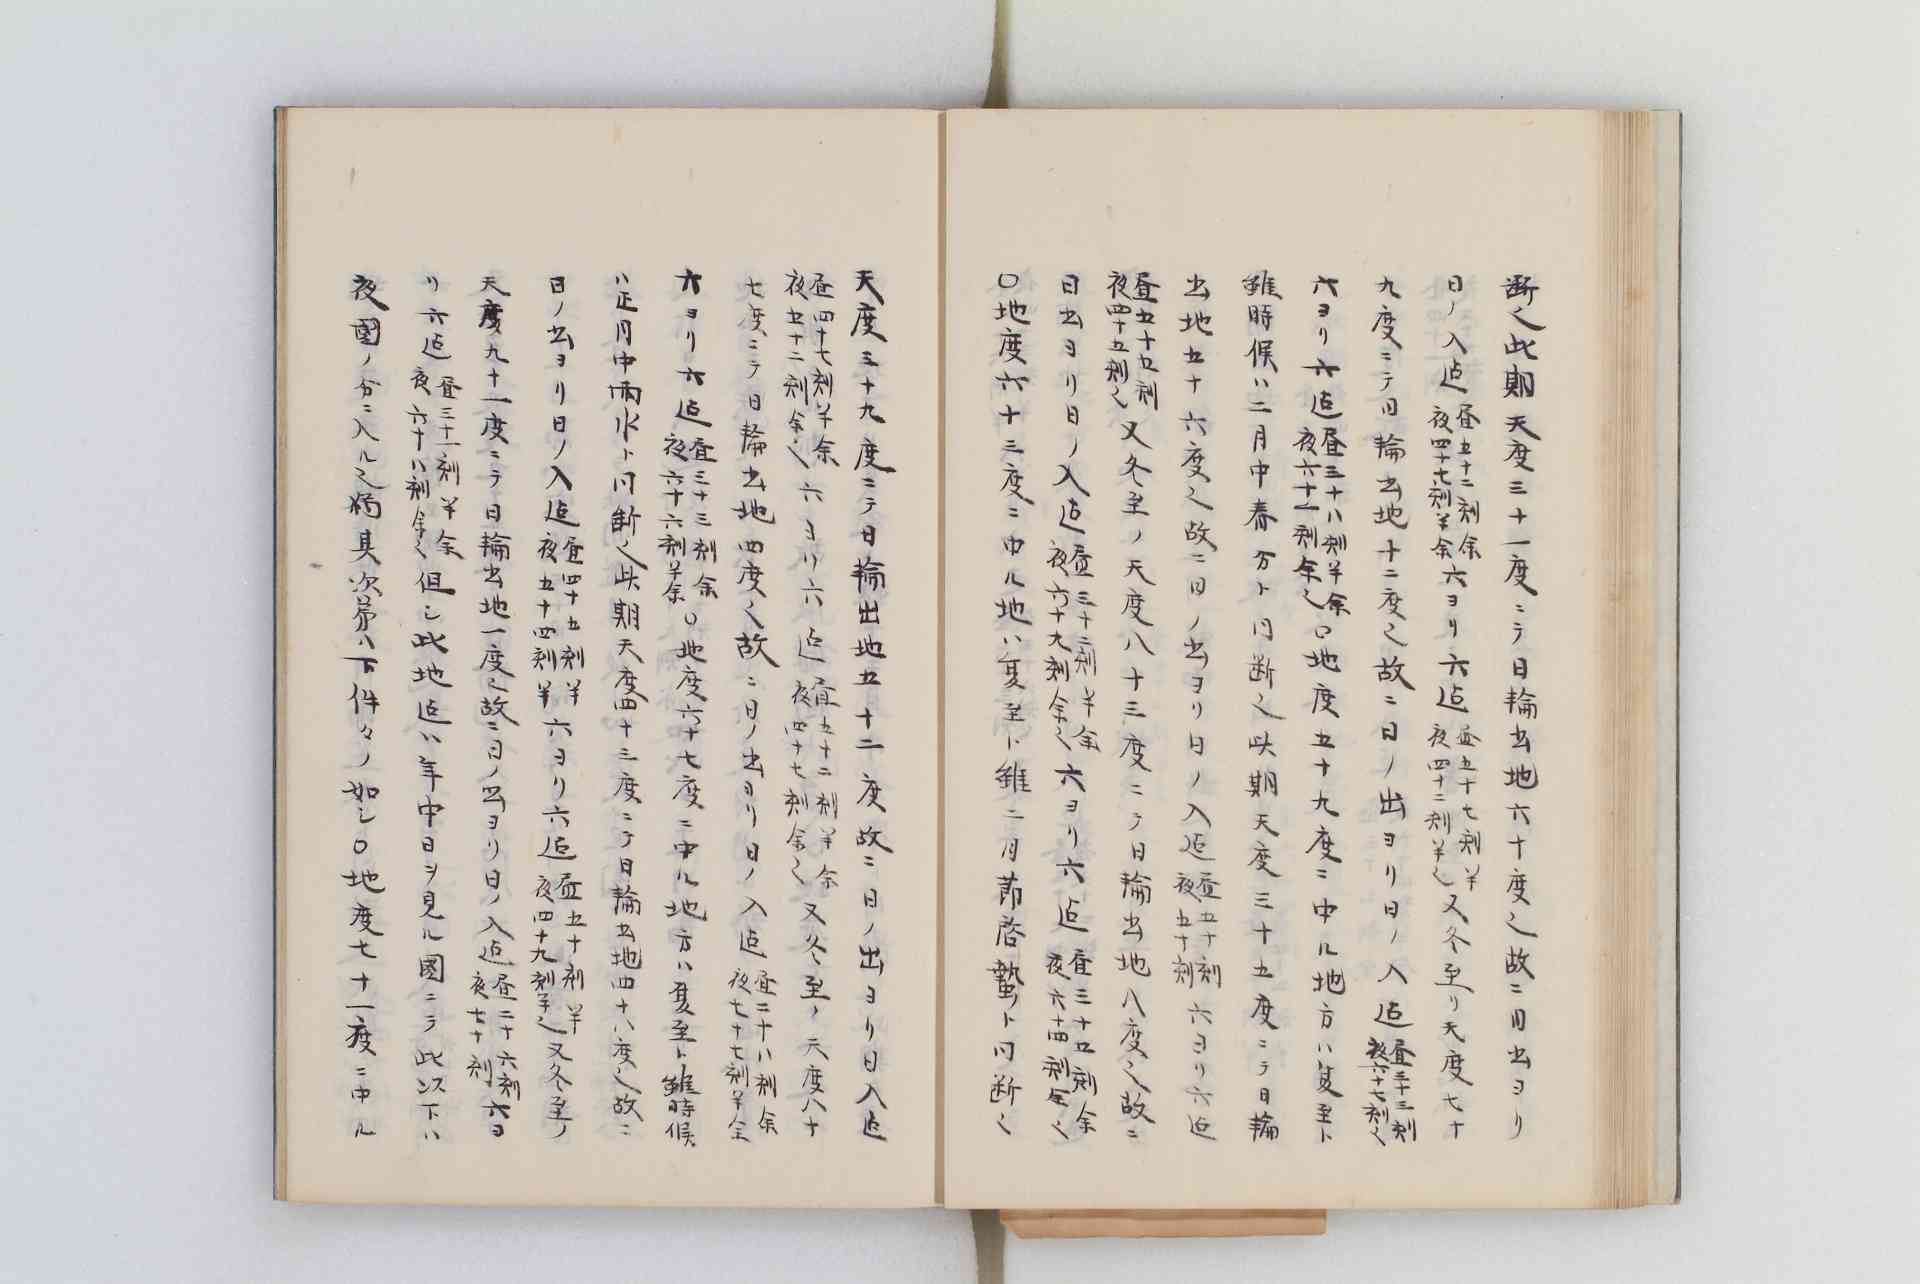 断之此期天度三十一度ニテ日輪出地六十度之故ニ日出ヨリ
日ノ入迠昼五十二刻余夜四十七刻半余六ヨリ六迠昼五十七刻半夜四十二刻半之又冬至リ天度七十
九度ニテ日輪出地十二度之故ニ日ノ出ヨリ日ノ入迠昼三十三刻夜六十七刻之
六ヨリ六迠昼三十八刻半余夜六十一刻余之〇地度五十九度ニ中ル地方ハ夏至ト
雖時候ハ二月中春分ト同断之此期天度三十五度ニテ日輪
出地五十六度之故ニ日ノ出ヨリ日ノ入迠昼五十刻夜五十刻六ヨリ六迠
昼五十五刻夜四十五刻之又冬至ノ天度八十三度ニテ日輪出地八度之故ニ
日出ヨリ日ノ入迠昼三十二刻半余夜六十九刻余之六ヨリ六迠昼三十五刻余夜六十四刻余之
〇地度六十三度ニ中ル地ハ夏至ト雖二月節啓蟄ト同断之
天度三十九度ニテ日輪出地五十二度故ニ日ノ出ヨリ日入迠
昼四十七刻半余夜五十二刻余之六ヨリ六迠昼五十二刻半余夜四十七刻余之又冬至ノ天度八十
七度ニテ日輪出地四度之故ニ日ノ出ヨリ日ノ入迠昼二十八刻余夜七十七刻半余
六ヨリ六迠昼三十三刻余夜六十六刻半余〇地度六十七度ニ中ル地方ハ夏至ト雖時候
ハ正月中雨水ト同断之此期天度四十三度ニテ日輪出地四十八度之故ニ
日ノ出ヨリ日ノ入迠昼四十五刻半夜五十四刻半六ヨリ六迠昼五十刻半夜四十九刻半之又冬至ノ
天度九十一度ニテ日輪出地一度之故ニ日ノ出ヨリ日ノ入迠昼二十六刻夜七十刻六ヨ
リ六迠昼三十一刻半余夜六十八刻余之但シ此地迠ハ年中日ヲ見ル國ニテ此以下ハ
夜國ノ分ニ入ル之猶其次第ハ下件々ノ如シ〇地度七十一度ニ中ル